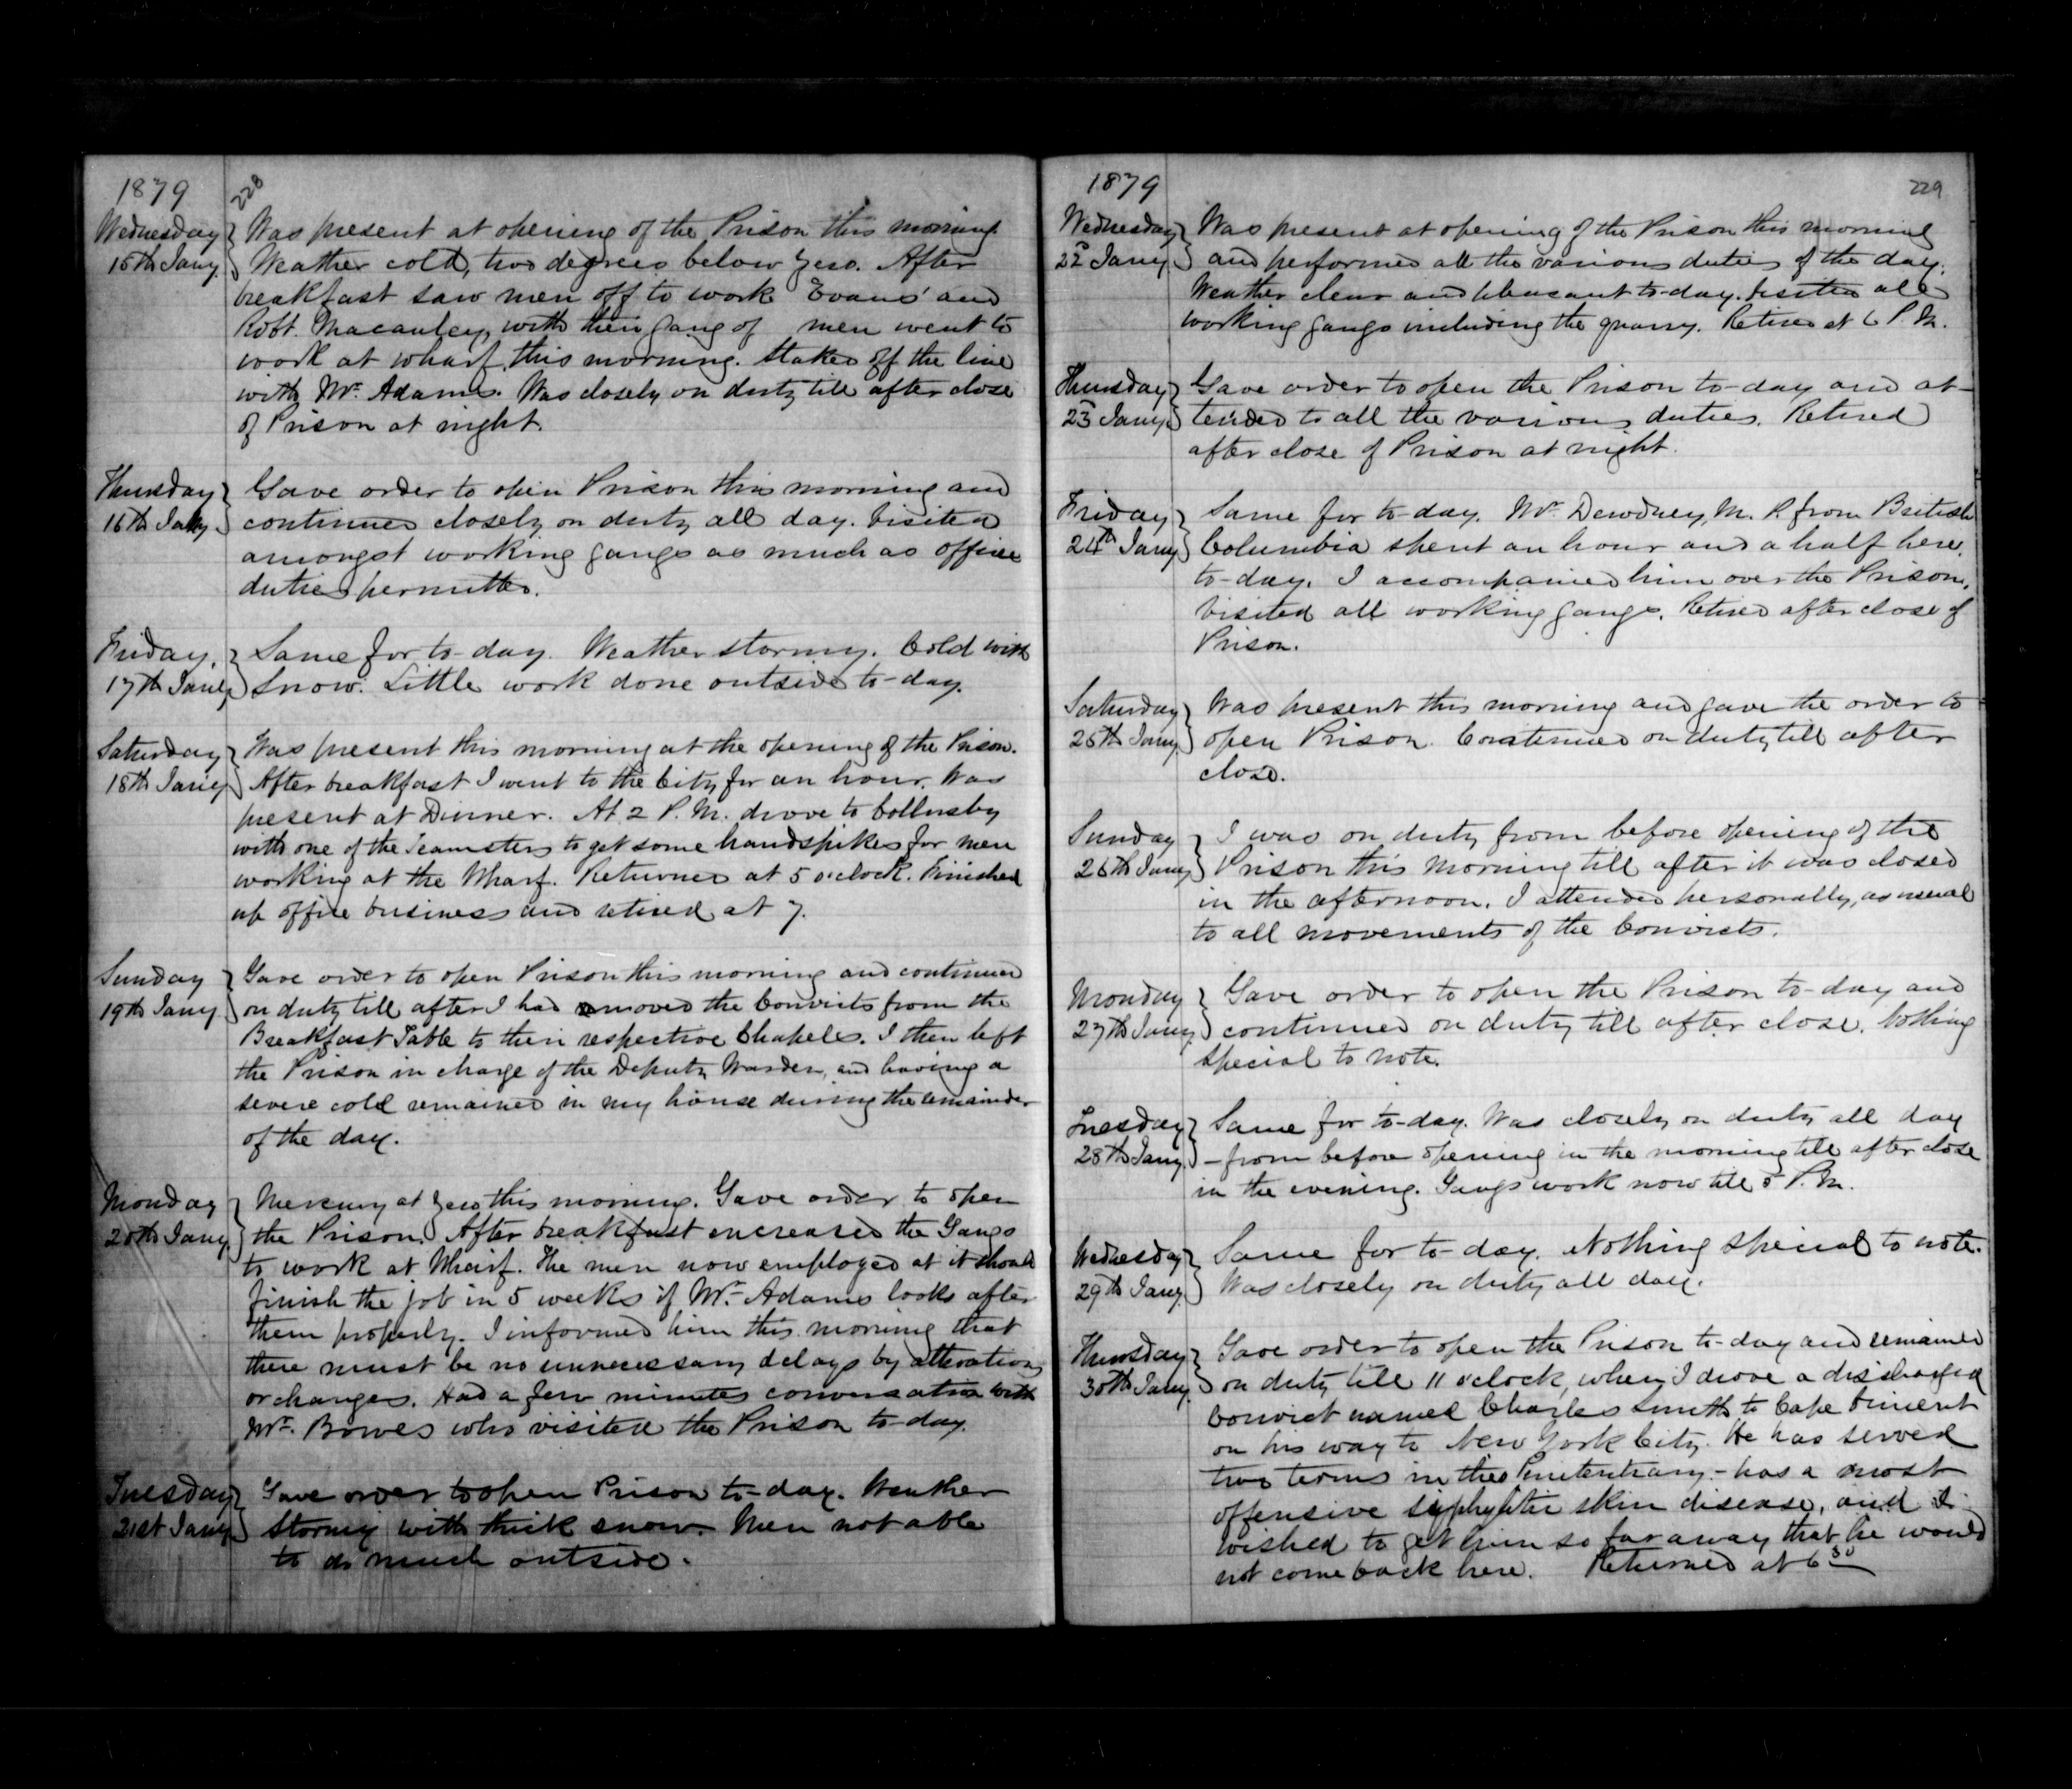 1879
228
Wednesday } Was present at opening of the Prison this morning
15th Jany. } Weather cold, two degrees below zero. After
breakfast saw men off to work Evans' and
Robt. Macauley, with their gang of men went to
work at wharf this morning. Staked off the line
with Mr. Adams. Was closely on duty till after close
of Prison at night.
Thursday } Gave order to open Prison this morning and
16th Jany. } continued closely on duty all day. Visited
amongst working gangs as much as office
duties permitted.
Friday, } Same for to-day. Weather stormy. Cold with
17th Jany. } Snow. Little work done outside to-day.
Saturday } Was present this morning at the opening of the Prison.
18th Jany. } After breakfast I went to the City for an hour. Was
present at Dinner. At 2 P.M. drove to Collinsby
with one of the Teamsters to get some handspikes for men
working at the Wharf. Returned at 5 o'clock. Finished
up office business and retired at 7.
Sunday } Gave order to open Prison this morning and continued
19th Jany. } on duty till after I had moved the Convicts from the
Breakfast Table to their respective Chapels. I then left
the Prison in charge of the Deputy Warden, and having a
severe cold remained in my house during the remainder
of the day.
Monday } Mercury at zero this morning. Gave order to open
20th Jany. } the Prison. After breakfast increased the Gangs
to work at Wharf. The men now employed at it should
finish the job in 5 weeks if Mr. Adams looks after
them properly. I informed him this morning that
there must be no unnecessary delays by alterations
or changes. Had a few minutes conversation with
Mr. Bowes who visited the Prison to-day.
Tuesday } Gave order to open Prison to-day. Weather
21st Jany. } stormy with thick snow. Men not able
to do much outside.
1879
229
Wednesday } Was present at opening of the Prison this morning
22 Jany. } and performed all the various duties of the day.
Weather clear and pleasant to-day. Visited all
working gangs including the quarry. Retired at 6 P.M.
Thursday } Gave order to open the Prison to-day and at-
23 Jany. } tended to all the various duties. Retired
after close of Prison at night.
Friday } Same for to-day. Mr. Dewdney, M. P. from British
24th Jany } Columbia spent an hour and a half here
to-day. I accompanied him over the Prison.
Visited all working gangs. Retired after close of
Prison.
Saturday } Was present this morning and gave the order to
25th Jany } open Prison. Continued on duty till after
close.
Sunday } I was on duty from before opening of the
26th Jany } Prison this morning till after it was closed
in the afternoon. I attended personally, as usual
to all movements of the Convicts.
Monday } Gave order to open the Prison to-day and
27th Jany. } continued on duty till after close. Nothing
special to note.
Tuesday } Same for to-day. Was closely on duty all day
28th Jany. } – from before opening in the morning till after close
in the evening. Gangs work now till 5 P.M.
Wednesday } Same for to-day. Nothing special to note.
29th Jany. } Was closely on duty all day.
Thursday } Gave order to open the Prison to-day and remained
30th Jany. } on duty till 11 o'clock, when I drove a discharged
Convict named Charles Smith to Cape Vincent
on his way to New York City. He has served
two terms in the Penitentiary – has a most
offensive syphylitic skin disease, and I
wished to get him so far away that he would
not come back here. Returned at 6 30